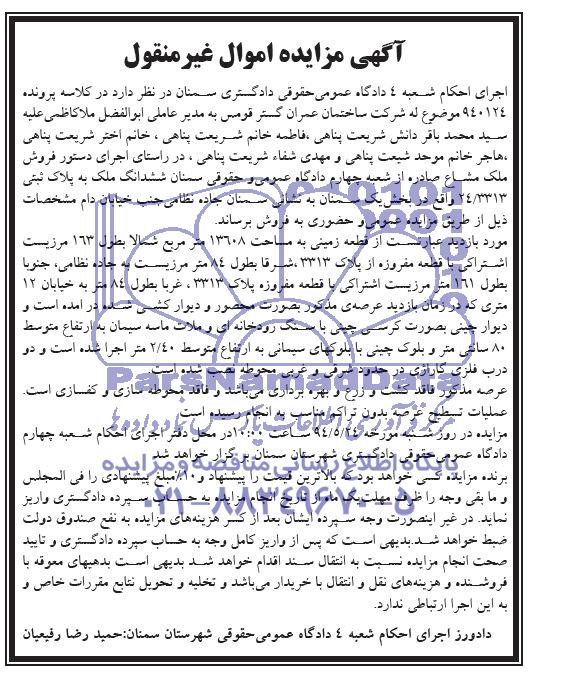 آگهی مزایده اموال غیرمنقول
اجرای احکام شعبه ۴ دادگاه عمومی‌حقوقی دادگستری سمنان در نظر دارد در کلاسه پرونده
۹۴۰۱۲۴ موضوع له شرکت ساختمان عمران گستر قومس به مدیر عاملی ابوالفضل ملاکاظمی‌علیه
سید محمد باقر دانش شریعت پناهی ،فاطمه خانم شریعت پناهی ، خانم اختر شریعت پناهی
،هاجر خانم موحد شیعت پناهی و مهدی شفاء شریعت پناهی ، در راستای اجرای دستور فروش
ملک مشاع صادره از شعبه چهارم دادگاه عمومی‌و حقوقی سمنان ششدانگ ملک به پلاک ثبتی
۲۴/۳۳۱۳ واقع در بخش‌یک سمنان به نشانی سمنان جاده نظامی‌جنب خیابان دام مشخصات
ذیل از طریق مزایده عمومی‌و حضوری به فروش برساند.
مورد بازدید عبارتست از قطعه زمینی به مساحت ۱۳۶۰۸ متر مربع شمالا بطول ۱۶۳ مرزیست
اشتراکی با قطعه مفروزه از پلاک ۳۳۱۳ ،شرقا بطول ۸۴ متر مرزیست به جاده نظامی، جنوبا
بطول ۱۶۱ متر مرزیست اشتراکی با قطعه مفروزه پلاک ۳۳۱۳ ، غربا بطول ۸۴ متر به خیابان ۱۲
متری که در زمان بازدید عرصه‌ی مذکور بصورت محصور و دیوار کشی شده در امده است و
دیوار چینی بصورت کرسی چینی با سنگ رودخانه ای و ملات ماسه سیمان به ارتفاع متوسط
۸۰ سانتی متر و بلوک چینی با بلوکهای سیمانی به ارتفاع متوسط ۲/۴۰ متر اجرا شده است و دو
درب فلزی گاراژی در حدود شرقی و غربی محوطه نصب شده است.
عرصه مذکور فاقد کشت و زرع و بهره برداری می‌باشد و فاقد محوطه سازی و کفسازی است.
عملیات تسطیح عرصه بدون تراکم‌مناسب به انجام رسیده است
مزایده در روز شنبه مورخه ۹۴/۵/۲۴ ساعت ۱۰:۰۰در محل دفتر اجرای احکام شعبه چهارم
دادگاه عمومی‌حقوقی دادگستری شهرستان سمنان برگزار خواهد شد
برنده مزایده کسی خواهد بود که بالاترین قیمت را پیشنهاد و۱۰٪مبلغ پیشنهادی را فی المجلس
و ما بقی وجه را ظرف مهلت‌یک ماه از تاریخ انجام مزایده به حساب سپرده دادگستری واریز
نماید. در غیر اینصورت وجه سپرده ایشان بعد از کسر هزینه‌های مزایده به نفع صندوق دولت
ضبط خواهد شد.بدیهی است که پس از واریز کامل وجه به حساب سپرده دادگستری و تایید
صحت انجام مزایده نسبت به انتقال سند اقدام خواهد شد بدیهی است بدهیهای معوقه با
فروشنده و هزینه‌های نقل و انتقال با خریدار می‌باشد و تخلیه و تحویل نتابع مقررات خاص و
به این اجرا ارتباطی ندارد.
دادورز اجرای احکام شعبه ۴ دادگاه عمومی‌حقوقی شهرستان سمنان:حمید رضا رفیعیان
ParsNamadData
پایگاه اطلاع رسانی مناقصه و مزایده
۰۲۱-۸۸۳۴۹۶۷۰-۵